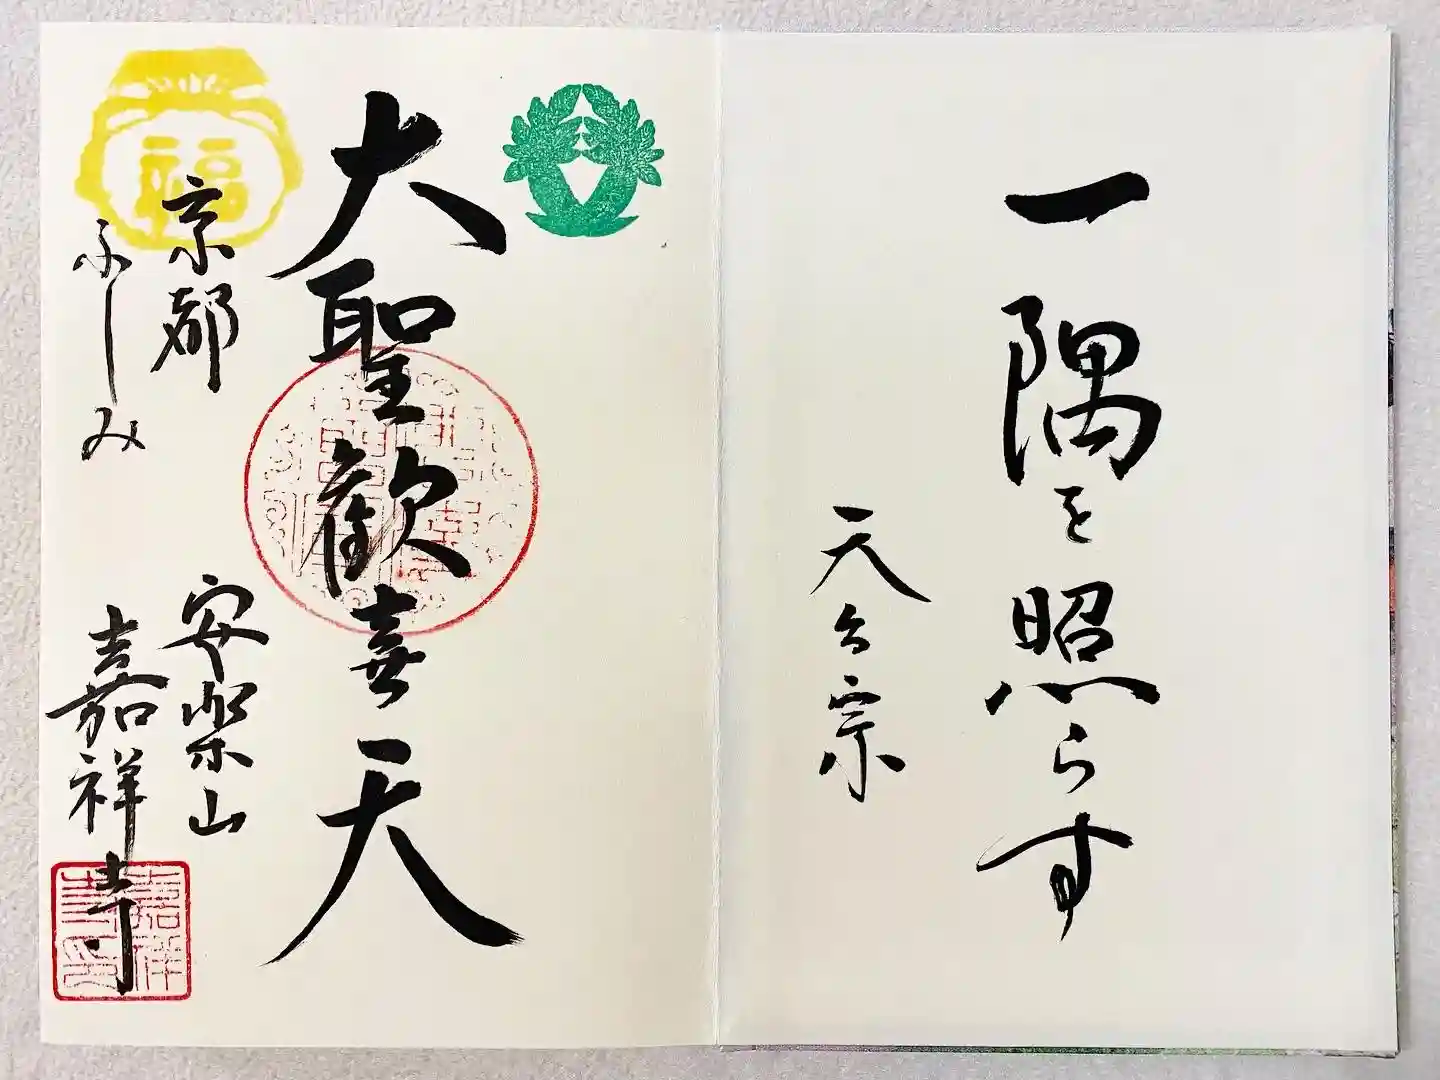 一隅を照らす
天台宗
大聖歓喜天
福
京都
ふしみ
安楽山
嘉祥寺
嘉祥寺印